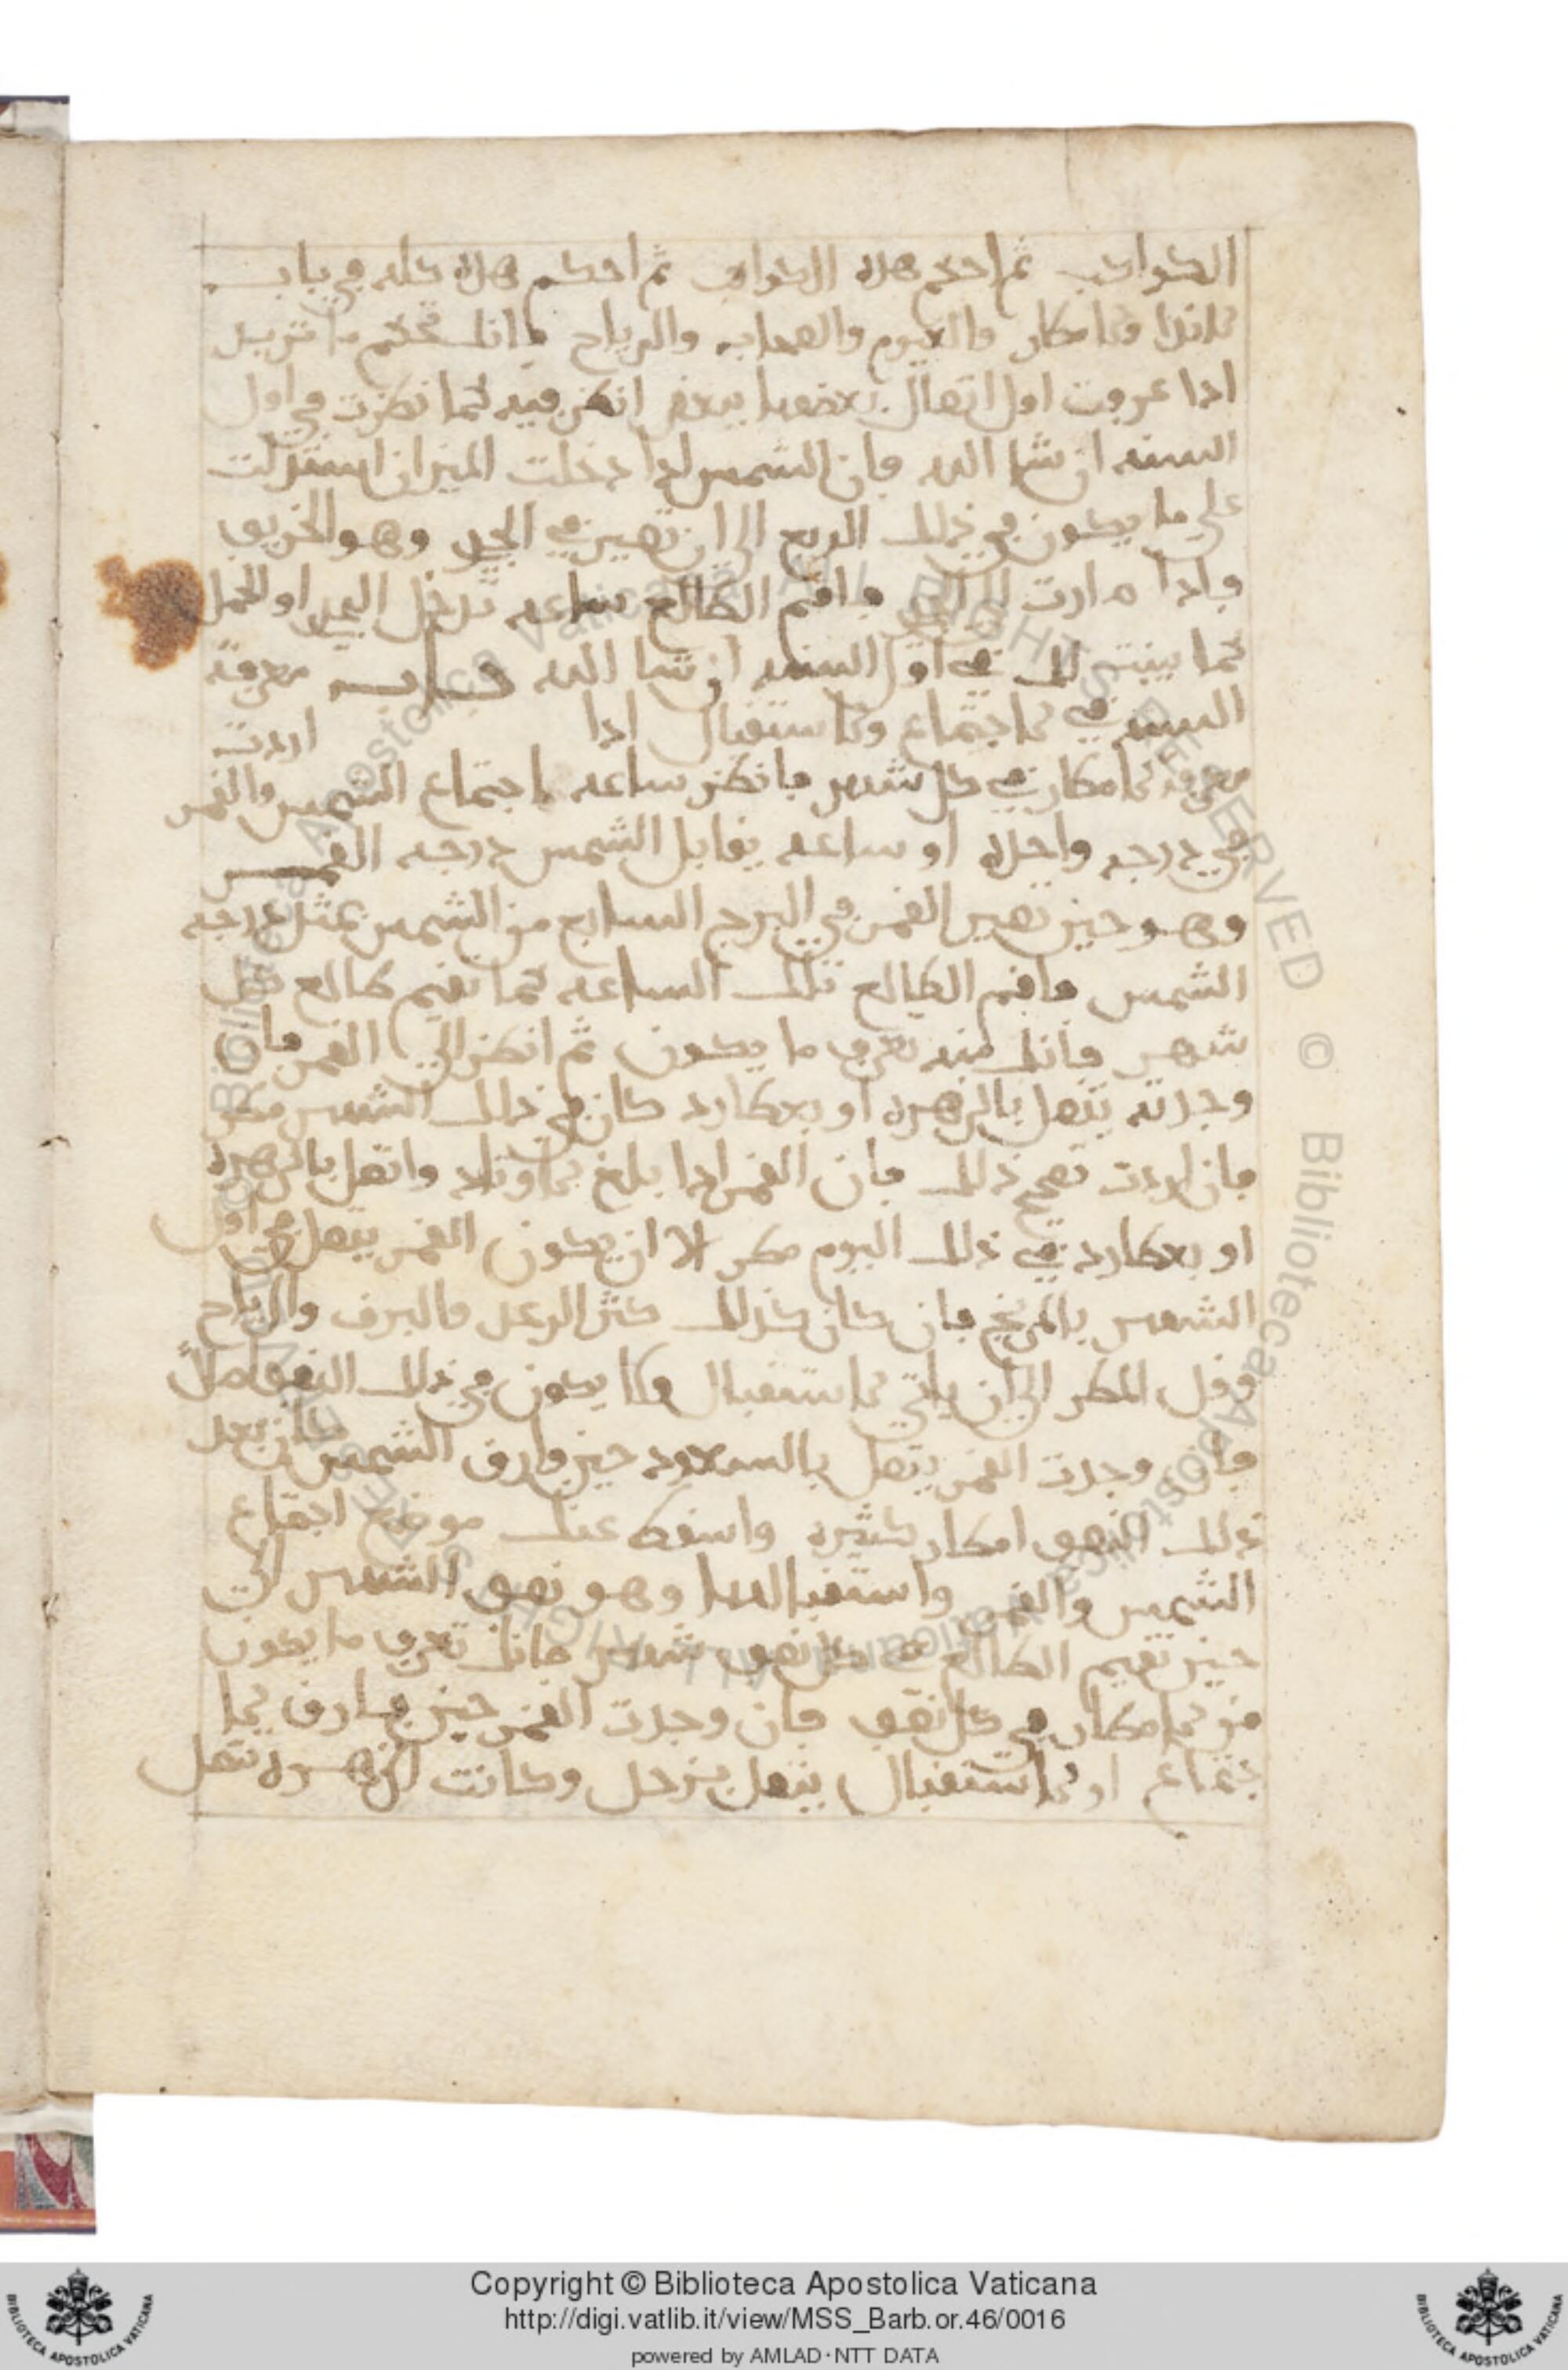 الكواكب ثم احكم هذه الكواكب ثم احكم هذه كله في باب
الاندا والامطار والغيوم والصحاب والرياح فانك تحكم ما تريد
اذا عرفت اول اتصال بعضها ببعض انظر فيه كما نظرت في اول
السنه ان شا الله فان الشمس اذا دخلت الميزان استدللت
على ما يكون في ذلك الربع الى ان تصير في الجدي وهو الخريف
فاذا صارت الى فاقم الطالع ساعه تدخل الجدي او الحمل
كما بينت لك في اول السنه ان شا الله حساب معرفة
السنه في الاجتماع والاستقبال اذا اردت
معرفه الامطار في كل شهر فانظر ساعه اجتماع الشمس والقمر
في درجه واحده او ساعه يقابل الشمس درجه القمر
وهو حين تصير القمر في البرج السابع من الشمس بمثل درجه
الشمس فاقم الطالع تلك الساعه كما تقيم طالع كل
شهر فانك منه تعرف ما يكون ثم انظر الى القمر فان
وجدته يتصل بالزهره او بعطارد كان في ذلك الشهر مطر
فان اردت تصحح ذلك فان القمر اذا بلغ الاوتاد واتصل بالزهره
او بعطارد في ذلك اليوم مطر الا ان يكون القمر يتصل في اول
الشهر بالمريخ فان كان كذلك كثر الرعد والبرق والرياح
وقل المطر الى ان ياتي الاستقبال ولا يكون في ذلك النصف اصلاً
فان وجدت القمر يتصل بالسعود حين فارق الشمس كان بعد
ذلك النصف امطار كثيره واسقط عنك موضع اجتماع
الشمس والقمر واستقبالهما وهو نصف الشهر الى
حين تقيم الطالع في كل نصف شهر فانك تعرف ما يكون
من الامطار في كل نصف فان وجدت القمر حين فارق الا
جتماع او الاستقبال يتصل بزحل وكانت الزهره تتصل
Copyright © Biblioteca Apostolica Vaticana
http://digi.vatlib.it/view/MSS_Barb.or.46/0016
powered by AMLAD · NTT DATA